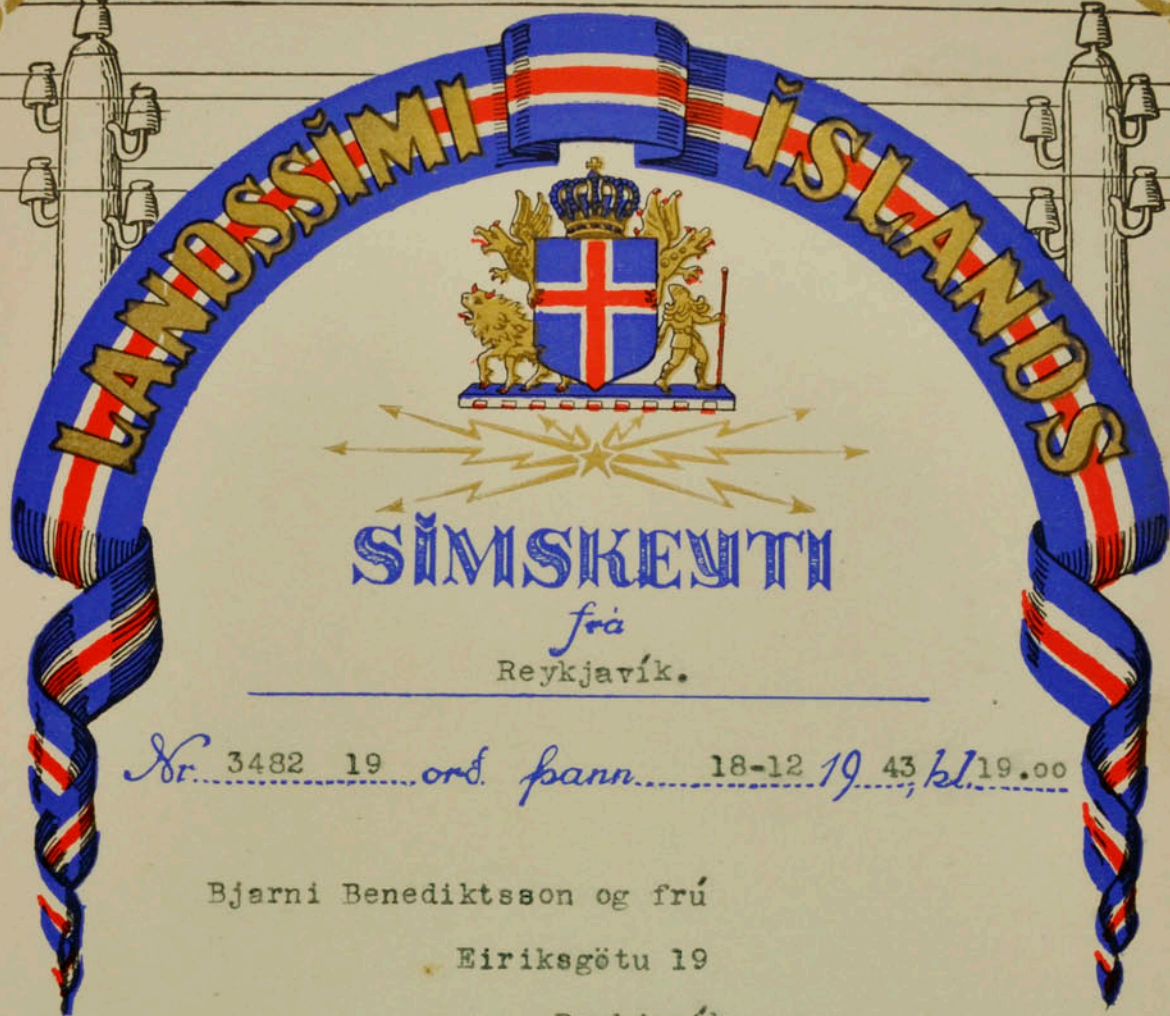 LANDSSÍMI ÍSLANDS
SÍMSKEYTI
frá
Reykjavík.
Nr. 3482 19 orð. þann 18-12 19 43, kl. 19.00
Bjarni Benediktsson og frú
Eiriksgötu 19